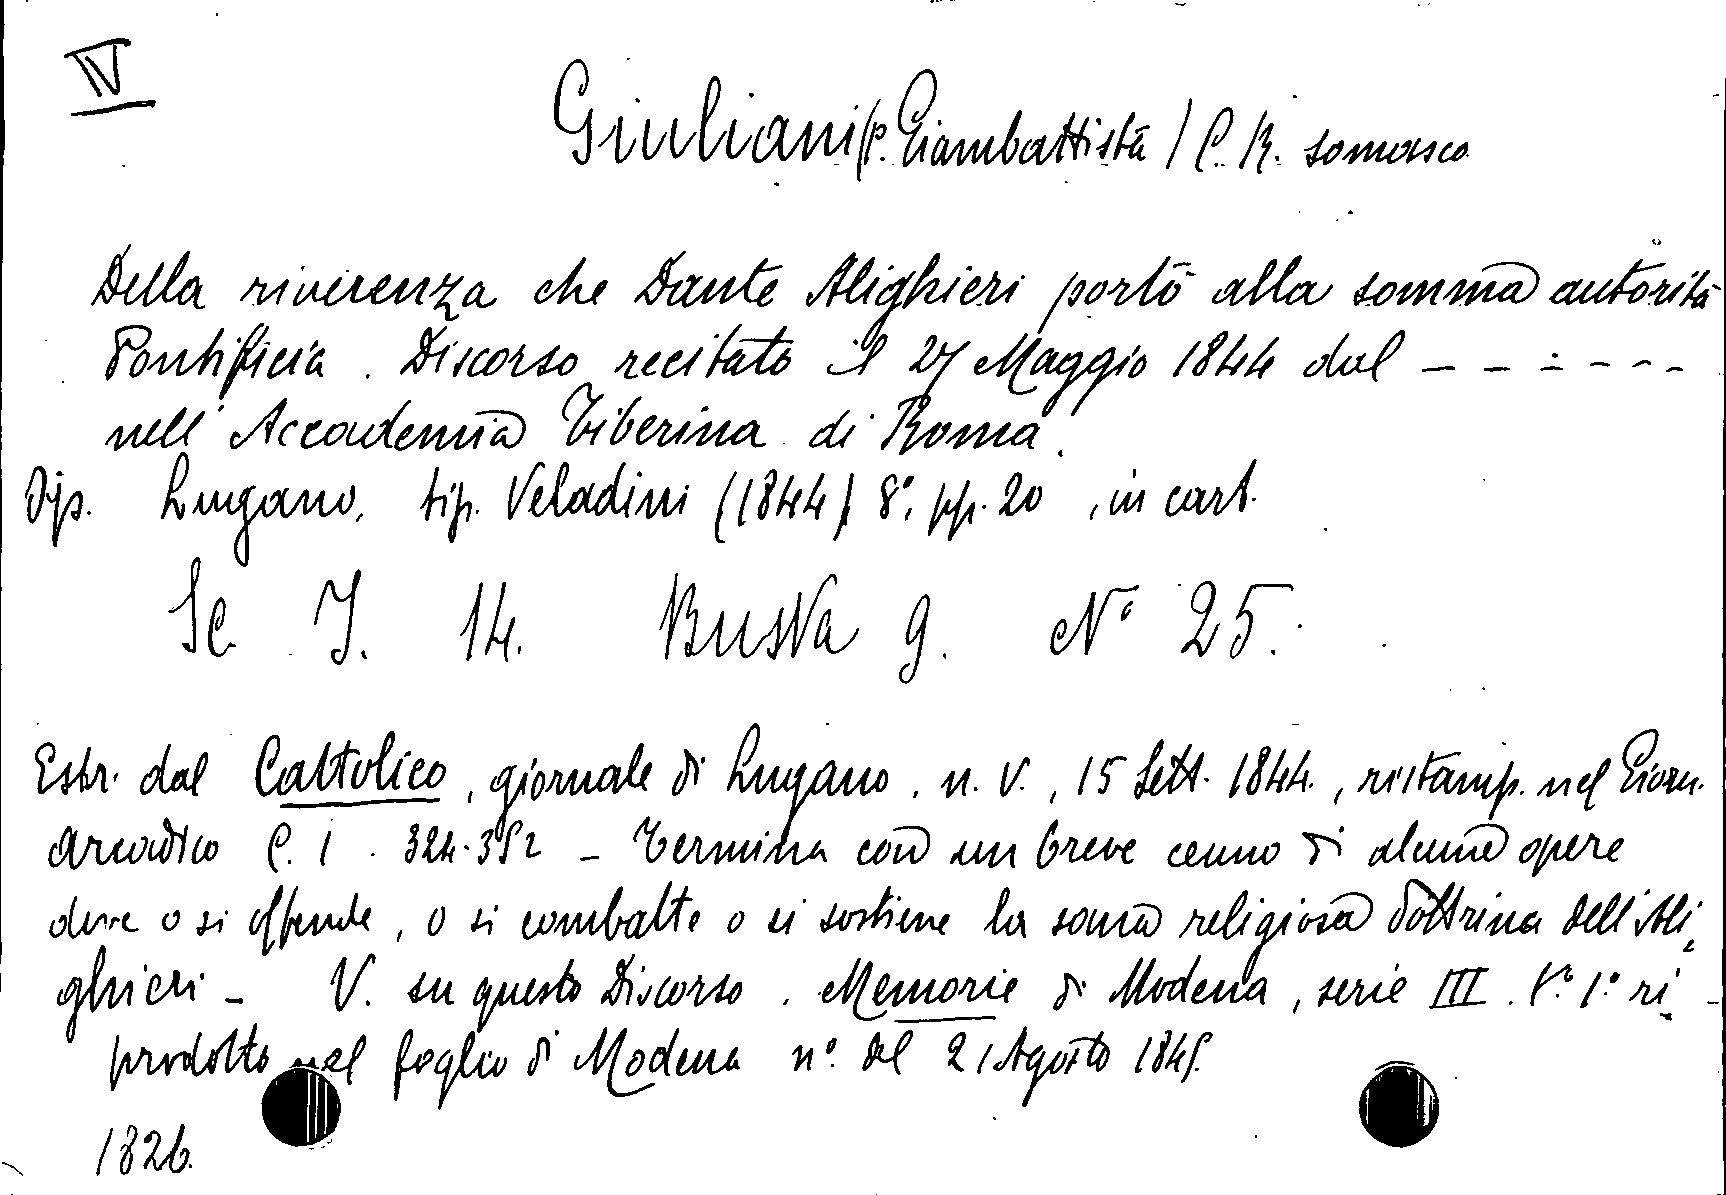 IV
Giuliani (p. Giambattista) C. R. somasco
Della riverenza che Dante Alighieri portò alla somma autorità
Pontificia. Discorso recitato il 27 Maggio 1844 dal - - - - - - -
nell'Accademia Tiberina di Roma.
Lugano, tip. Veladini (1844) 8°, pp. 20, in cart.
Sc. I. 14. Busta 9. N° 25.
Estr. dal Cattolico, giornale di Lugano, n. V., 15 Sett. 1844., ristamp. nel Giorn.
Arcadico C. I. 324-352 - Termina con un breve cenno di alcune opere
dove o si offende, o si combatte o si sostiene la sana religiosa dottrina dell'Ali-
ghieri - V. su questo Discorso. Memorie di Modena, serie III. V.° 1.° ri-
prodotto nel foglio di Modena n.° del 21 Agosto 1845.
1826.